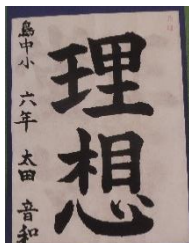 理想
島中小 六年 太田 音和